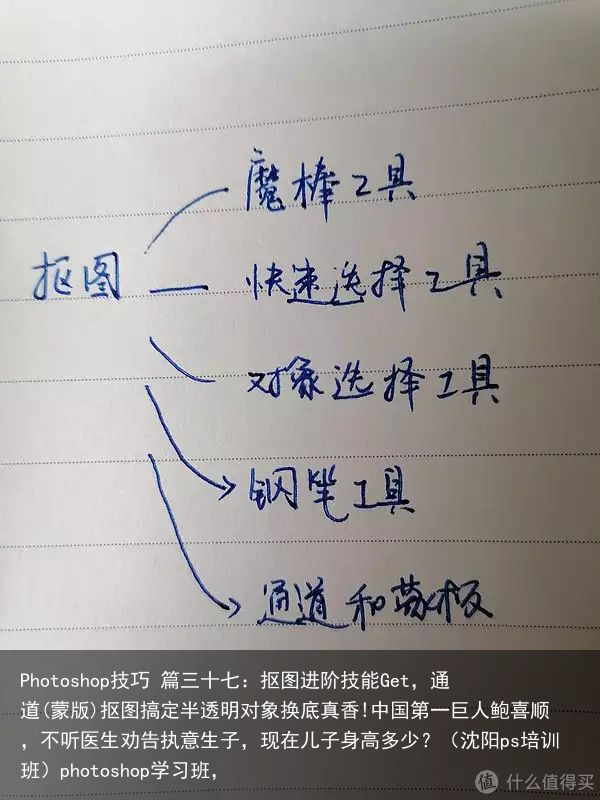 魔棒工具
抠图
快速选择工具
对象选择工具
钢笔工具
通道和蒙板
Photoshop技巧 篇三十七：抠图进阶技能Get，通
道(蒙版)抠图搞定半透明对象换底真香!中国第一巨人鲍喜顺
，不听医生劝告执意生子，现在儿子身高多少？（沈阳ps培训
班）photoshop学习班，
值 什么值得买